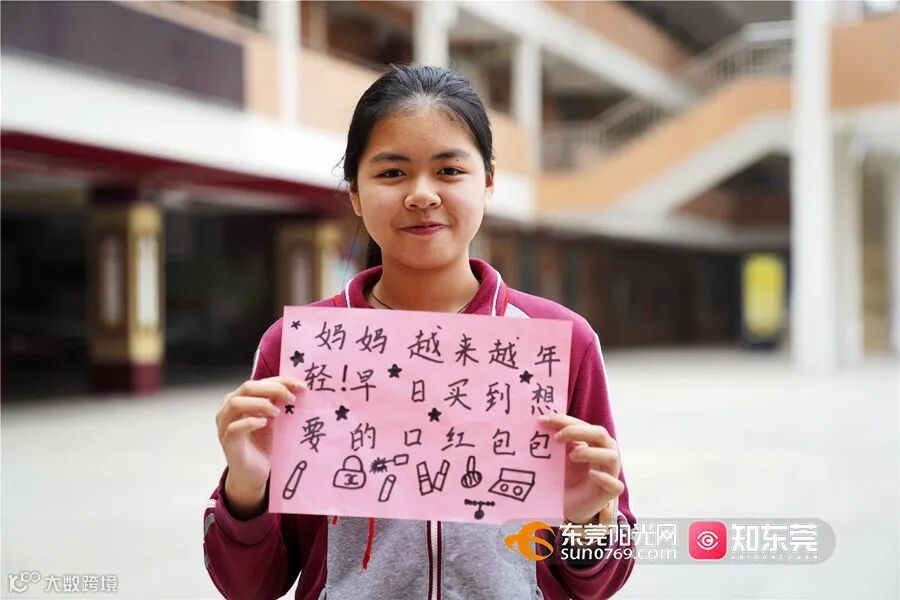 妈妈 越来越年
轻!早日买到想
要的口红包包
东莞阳光网
sun0769.com
知东莞
ZHIDONGGUAN
大数跨境